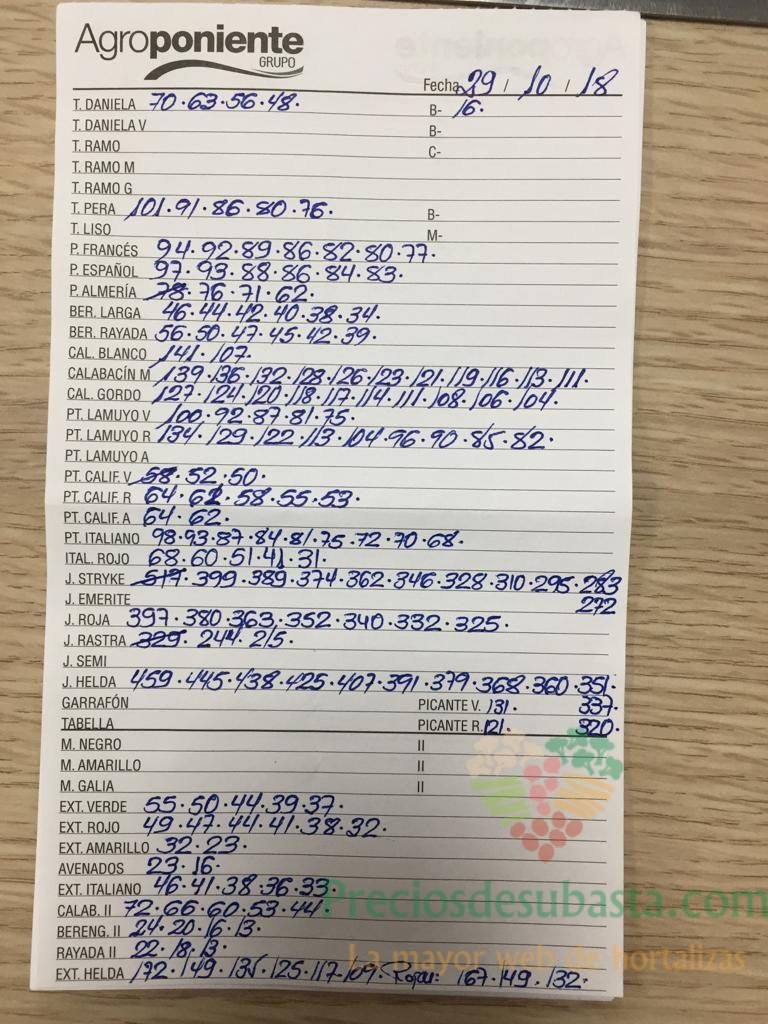 Agroponiente
GRUPO
Fecha 29 / 10 / 18
T. DANIELA 70·63·56·48· B- 16·
T. DANIELA V B-
T. RAMO C-
T. RAMO M
T. RAMO G
T. PERA 101·91·86·80·76· B-
T. LISO M-
P. FRANCÉS 94·92·89·86·82·80·77·
P. ESPAÑOL 97·93·88·86·84·83·
P. ALMERÍA 78·76·71·62·
BER. LARGA 46·44·42·40·38·34·
BER. RAYADA 56·50·47·45·42·39·
CAL. BLANCO 141·107·
CALABACÍN M 139·136·132·128·126·123·121·119·116·113·111·
CAL. GORDO 127·124·120·118·117·114·111·108·106·104·
PT. LAMUYO V 100·92·87·81·75·
PT. LAMUYO R 134·129·122·113·104·96·90·85·82·
PT. LAMUYO A
PT. CALIF. V 58·52·50·
PT. CALIF. R 64·62·58·55·53·
PT. CALIF. A 64·62·
PT. ITALIANO 98·93·87·84·81·75·72·70·68·
ITAL. ROJO 68·60·51·41·31·
J. STRYKE 399·389·374·362·346·328·310·295·283
J. EMERITE 272
J. ROJA 397·380·363·352·340·332·325·
J. RASTRA 329·244·215·
J. SEMI
J. HELDA 459·445·438·425·407·391·379·368·360·351·
GARRAFÓN PICANTE V. 131· 337·
TABELLA PICANTE R. 121· 320·
M. NEGRO II
M. AMARILLO II
M. GALIA II
EXT. VERDE 55·50·44·39·37·
EXT. ROJO 49·47·44·41·38·32·
EXT. AMARILLO 32·23·
AVENADOS 23·16·
EXT. ITALIANO 46·41·38·36·33·
Preciosdesubasta.com
CALAB. II 72·66·60·53·44·
BERENG. II 24·20·16·13·
RAYADA II 22·18·13·
La mayor web de hortalizas
EXT. HELDA 172·149·135·125·117·109· Rojas: 167·149·132·